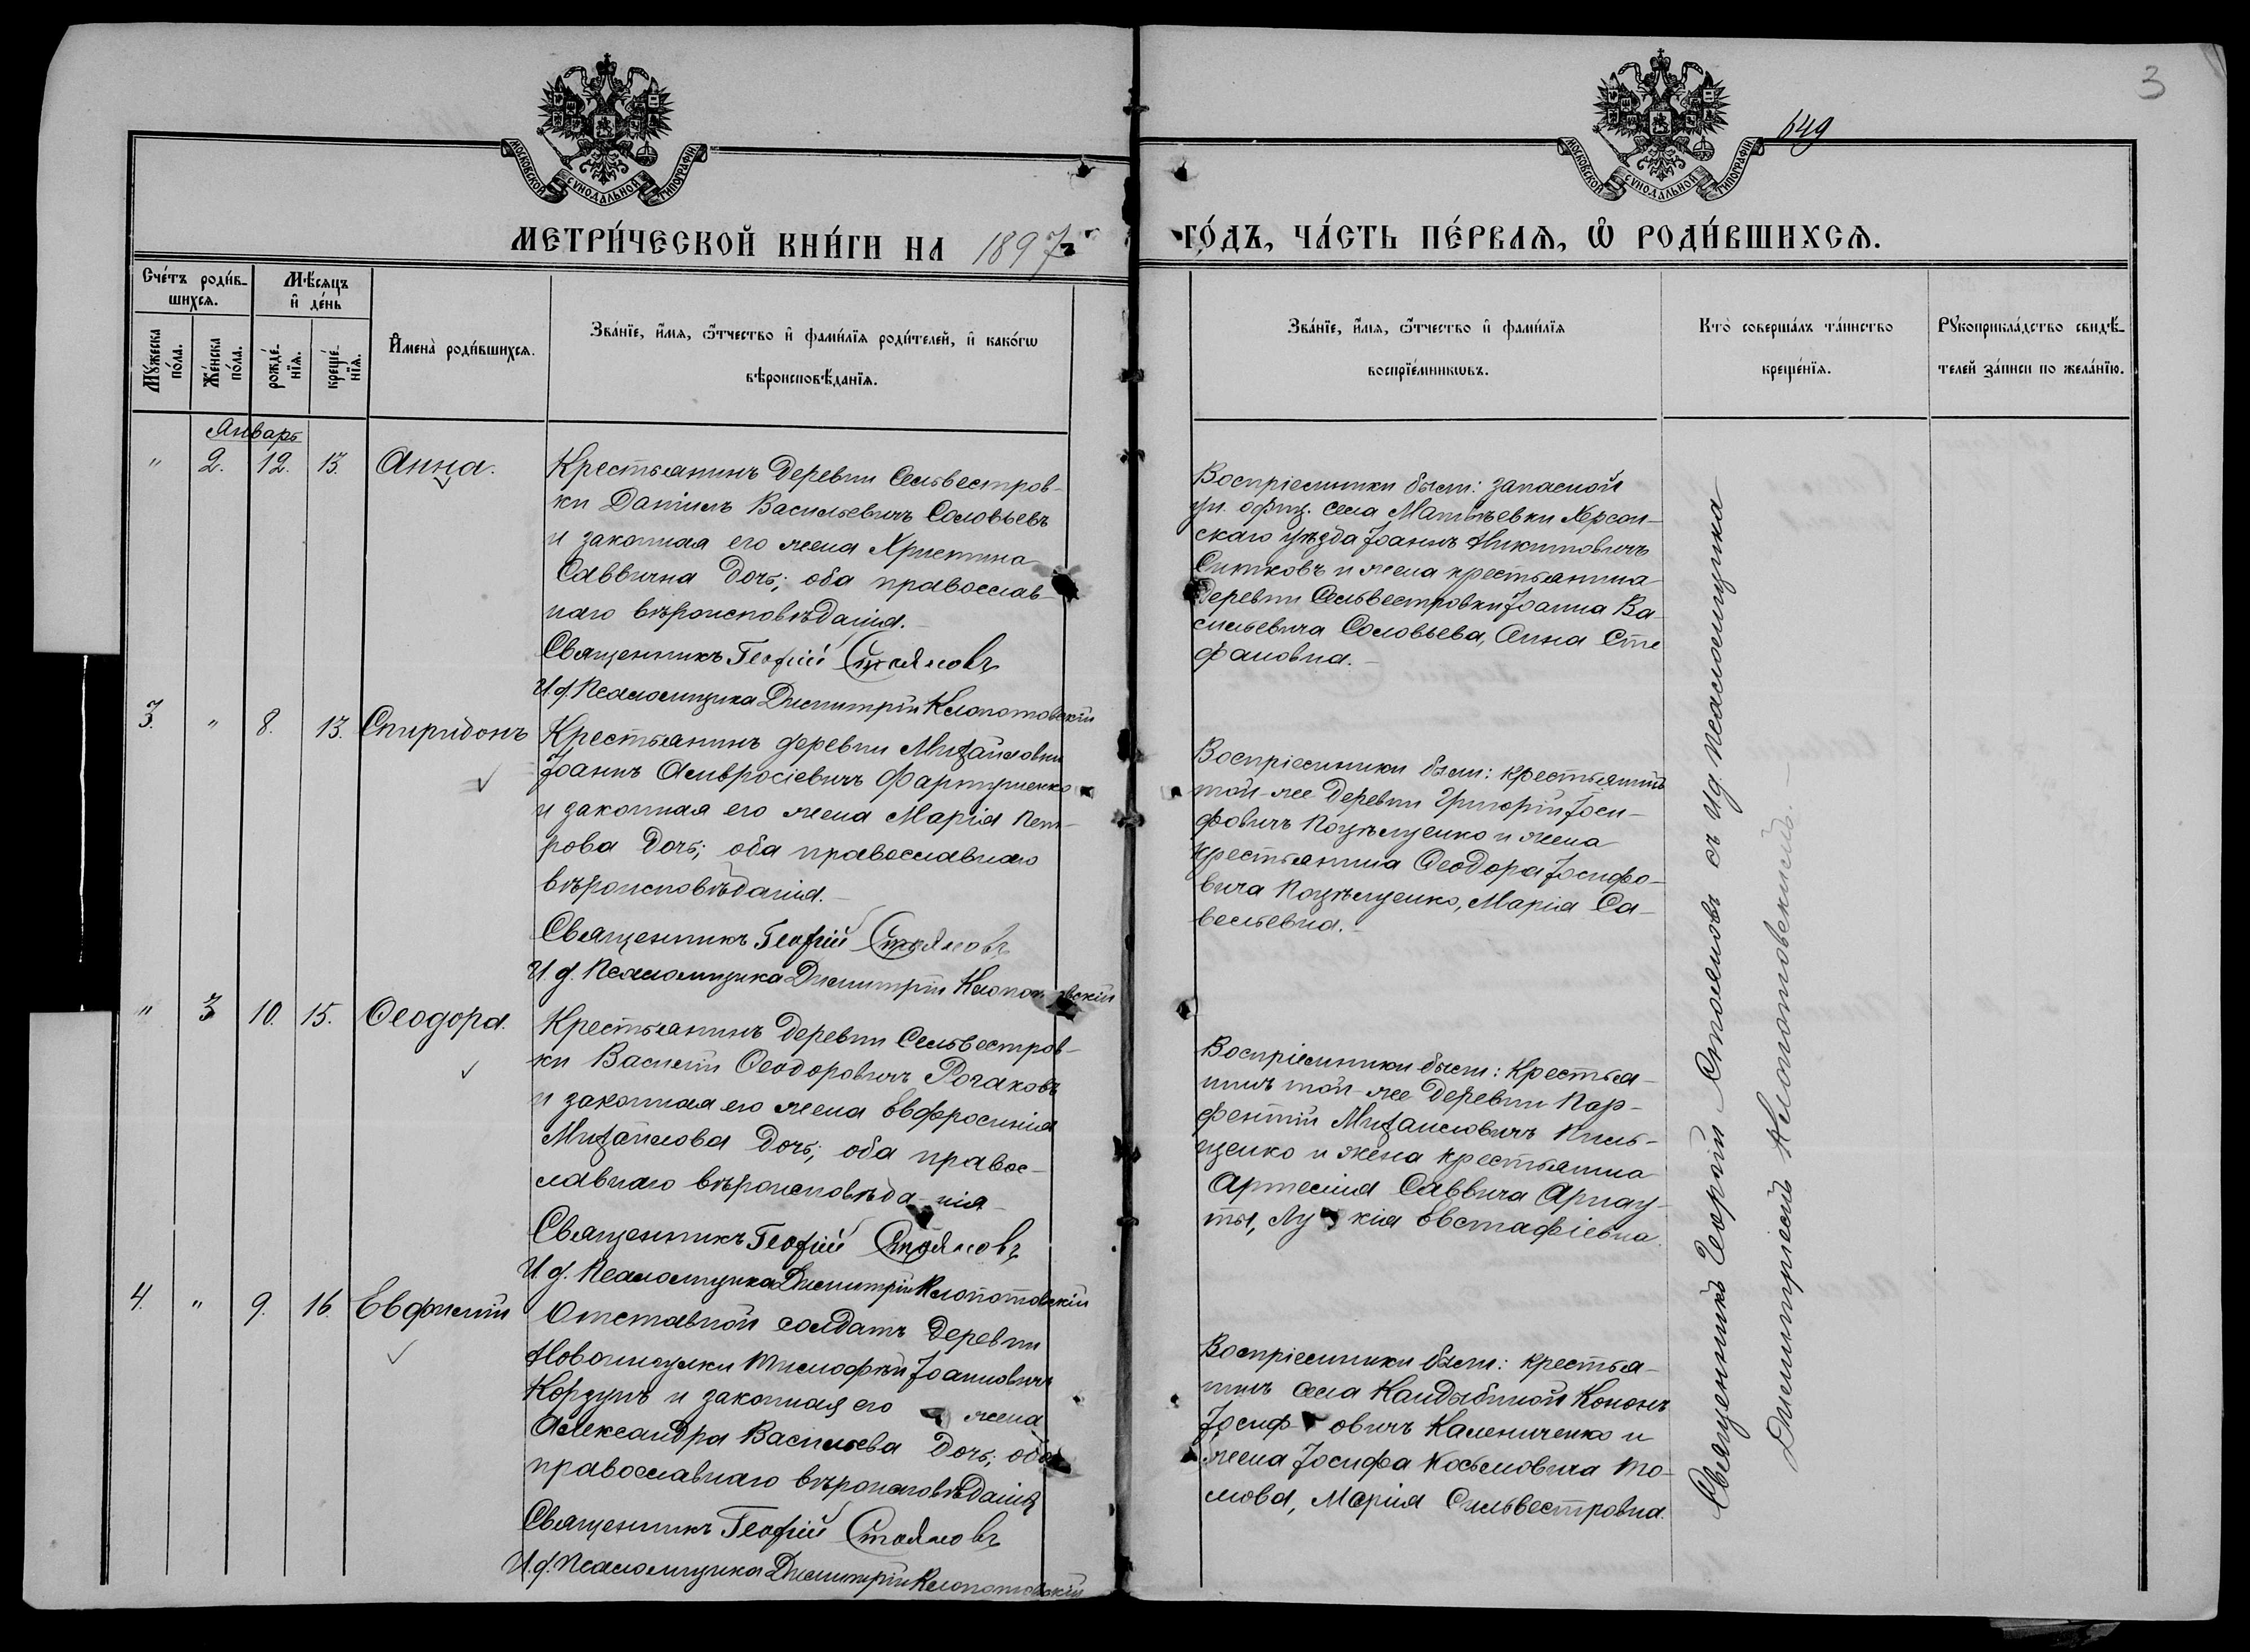 3
649
МОСКОВСКОЙ СѴНОДАЛЬНОЙ ТИПОГРАФІИ
МОСКОВСКОЙ СѴНОДАЛЬНОЙ ТИПОГРАФІИ
МЕТРИ́ЧЕСКОЙ КНИ́ГИ НА 1897 й
ГО́ДЪ, ЧА́СТЬ ПЕ́РВАѦ, Ѡ҆ РОДИ́ВШИХСѦ.
Сче́тъ роди́в-
шихсѧ.
Мѣ́сѧцъ
и҆ де́нь
Мꙋ́жеска
по́ла.
Же́нска
по́ла.
рожде́-
нїѧ.
креще́-
нїѧ.
И҆мена̀ роди́вшихсѧ.
Зва́нїе, и҆́мѧ, ѻ҆́тчество и҆ фамі́лїѧ роди́телей, и҆ како́гѡ
вѣроисповѣ́данїѧ.
Зва́нїе, и҆́мѧ, ѻ҆́тчество и҆ фамі́лїѧ
воспрїе́мникѡвъ.
Кто̀ соверша́лъ та́инство
креще́нїѧ.
Рꙋкоприкла́дство свидѣ́-
телей за́писи по жела́нїю.
Январь
" 2. 12. 13. Анна.
Крестьянинъ деревни Сельвестров-
ки Даніилъ Васильевичъ Соловьевъ
и законная его жена Христина
Саввична дочь; оба православ-
наго вѣроисповѣданія.
Священникъ Георгій Стояновъ
И д. Псаломщика Димитрій Клопотовскій
Воспріемники были: запасной
ун. офиц. села Матвѣевки Херсон-
скаго уѣзда Іоаннъ Никитовичъ
Ситковъ и жена крестьянина
деревни Сельвестровки Іоанна Ва-
сильевича Соловьева, Анна Сте
фановна.
3. " 8. 13. Спиридонъ
Крестьянинъ деревни Михайловки
Іоаннъ Амвросіевичъ
и законная его жена Марія Пет-
рова дочь; оба православнаго
вѣроисповѣданія.
Священникъ Георгій Стояновъ
И д. Псаломщика Димитрій Клопотовскій
Воспріемники были: крестьянинъ
той-же деревни Григорій Іоси-
фовичъ Поцѣлуенко и жена
крестьянина Ѳеодора Іосифо-
вича Поцѣлуенко, Марія Са-
вельевна.
" 3 10. 15. Ѳеодора.
Крестьянинъ деревни Сельвестров-
ки Василій Ѳеодоровичъ Рогаковъ
и законная его жена Евфросинія
Михайлова дочь; оба правос-
лавнаго вѣроисповѣда-нія
Священникъ Георгій Стояновъ
И д. Псаломщика Димитрій Клопотовскій
Воспріемники были: Крестья-
нинъ той-же деревни Пар-
фентій Михаиловичъ
и жена крестьянина
Артемія Саввича Арнау-
ты, Лу кія Евстафіевна.
4. " 9. 16. Евфимій
Отставной солдатъ деревни
Тимофѣй Іоанновичъ
Корзунъ и законная его жена
Александра Васильева дочь; оба
православнаго вѣроисповѣданія
Священникъ Георгій Стояновъ
И. д. Псаломщика Димитрій Клопотовскій
Воспріемники были: крестья-
нинъ села Кандыбиной Кононъ
Іосиф овичъ Калениченко и
жена Іосифа Косьмовича То-
мова, Марія Сильвестровна.
Священникъ Георгій Стояновъ съ И д. Псаломщика
Димитріемъ Клопотовскимъ.